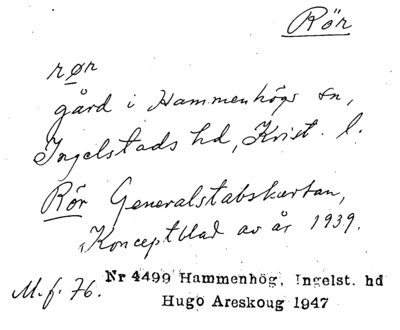 Rör
rør
gård i Hammenhögs sn,
Ingelstads hd, Krist. l.
Rör Generalstabskartan,
Konceptblad av år 1939.
M.f. 76.
Nr 4499 Hammenhög, Ingelst. hd
Hugo Areskoug 1947